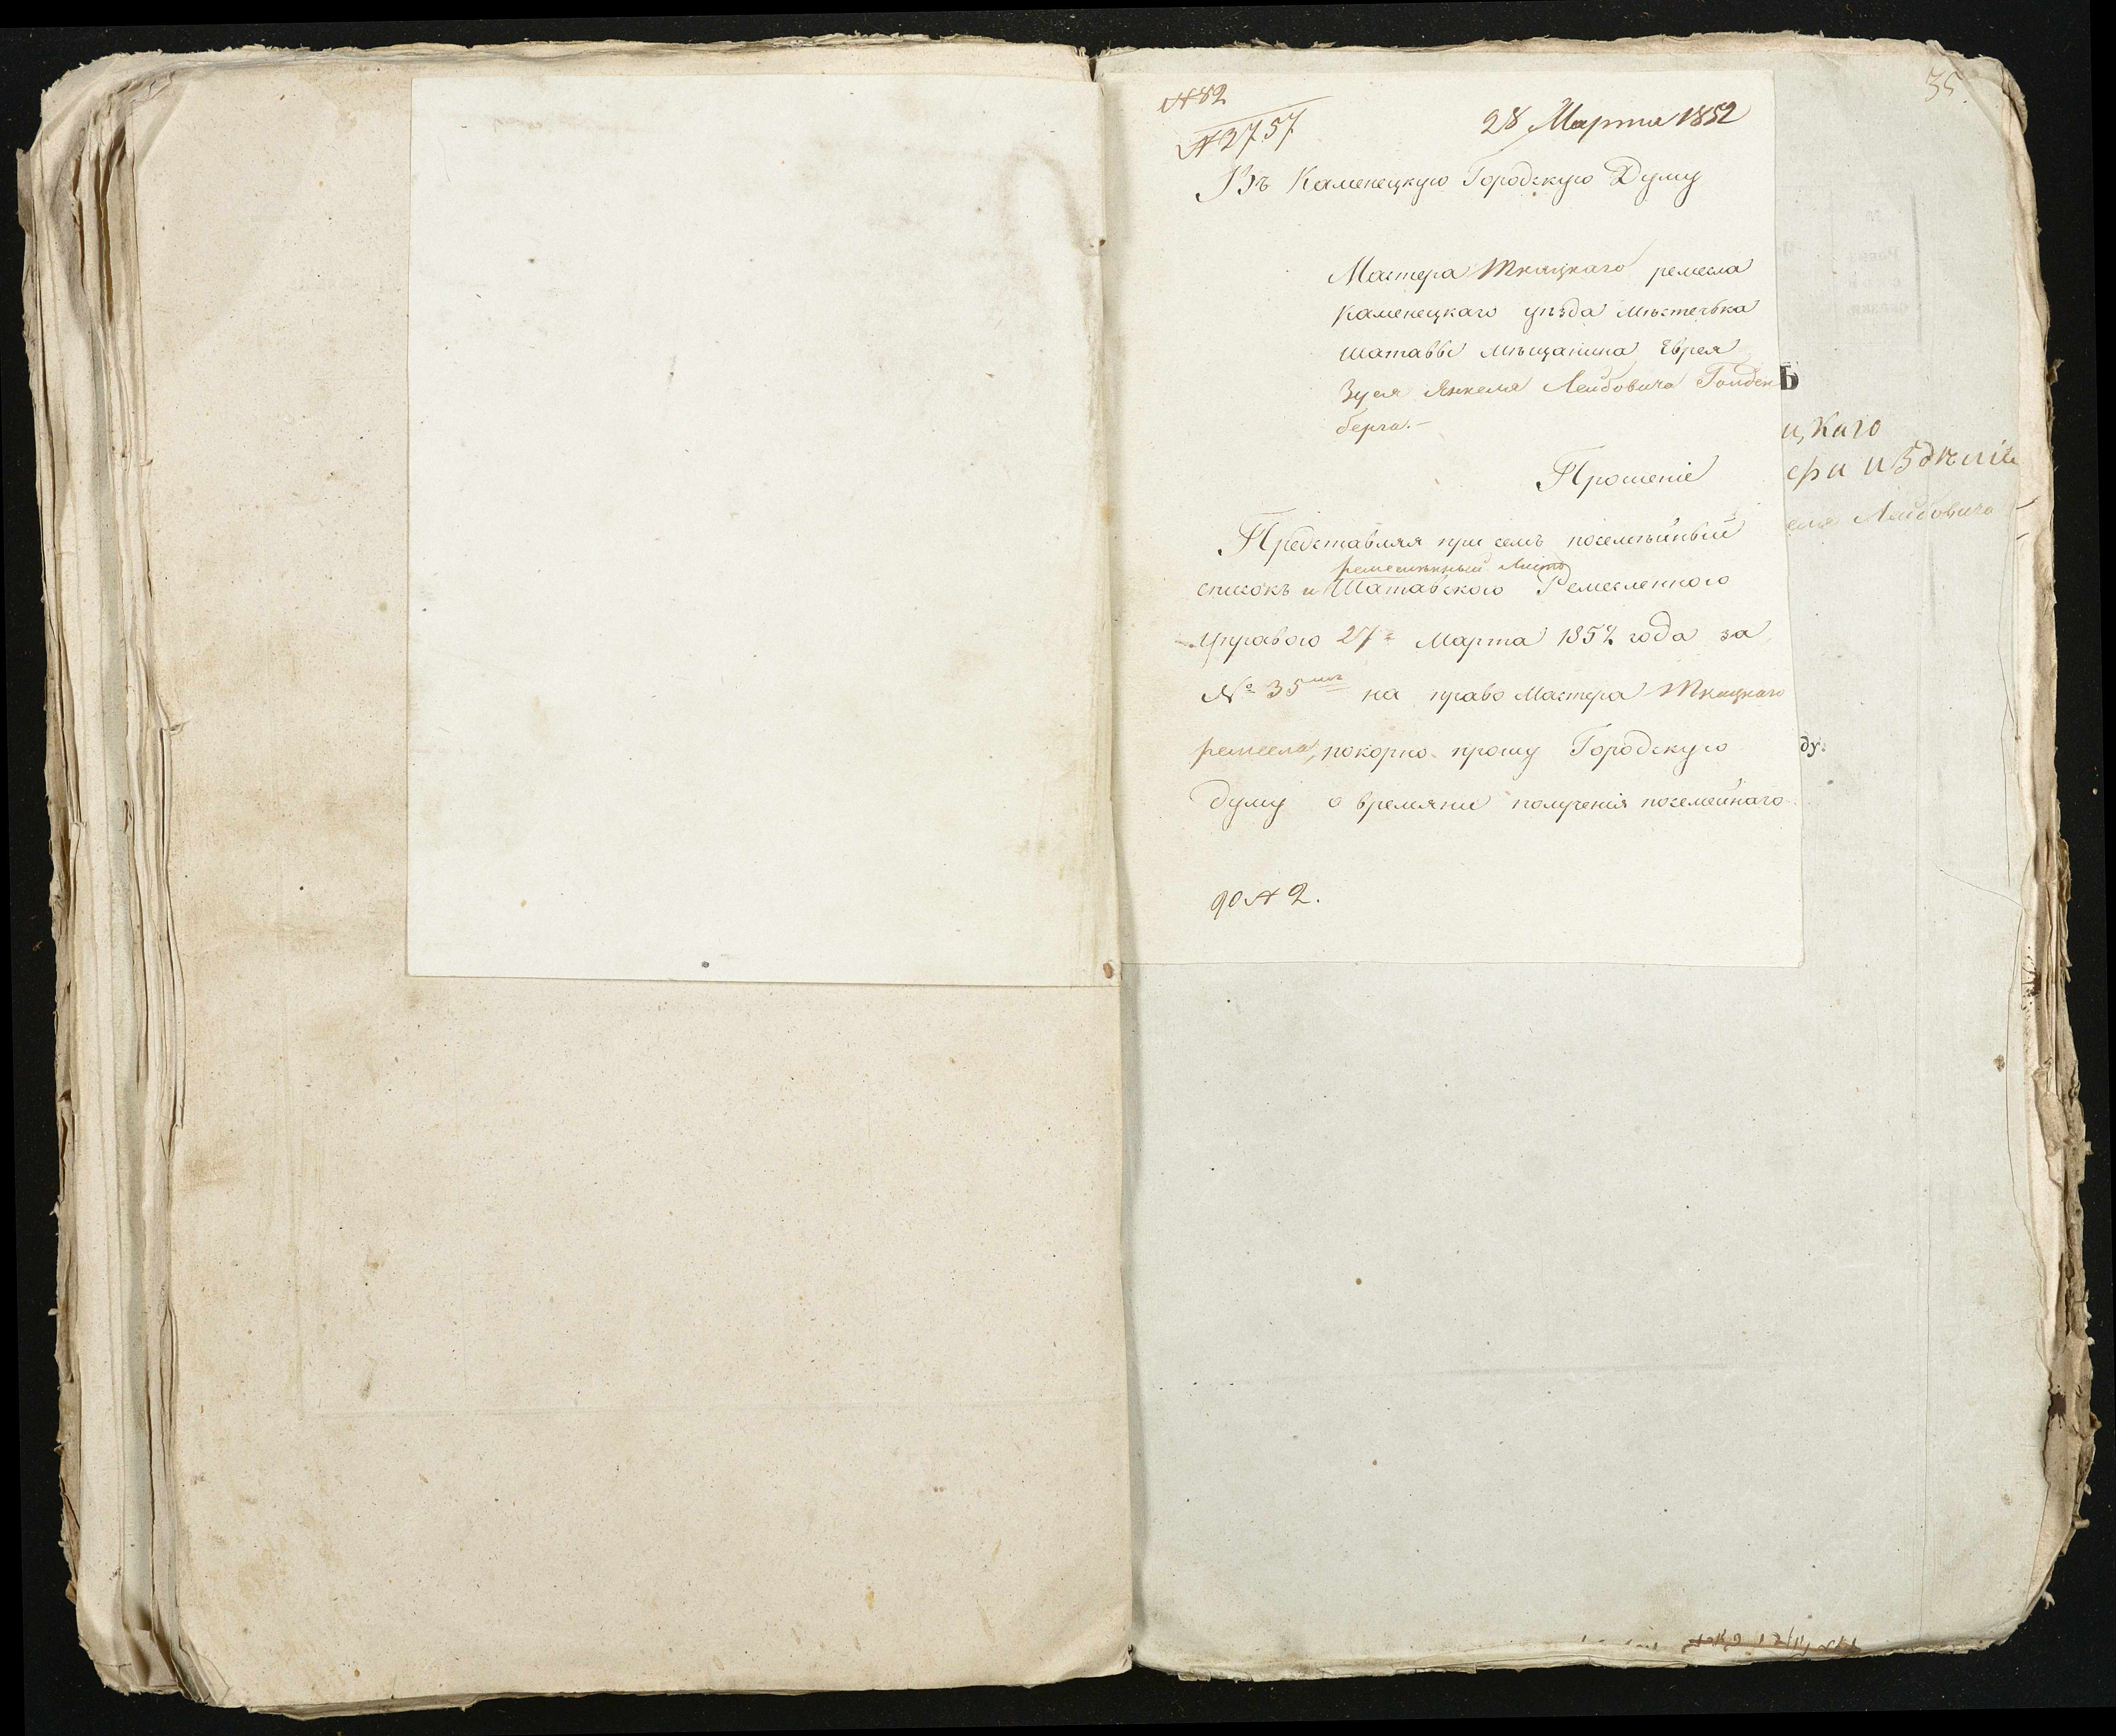 35
№ 82
№ 2757
28 Марта 1852
Въ Каменецкую Городскую Думу
Мастера Ткацкаго ремесла
Каменецкаго уѣзда мѣстечька
Шатаввы мѣщанина Еврея
Зуся Янкеля Лейбовича Гольден
берга.-
Прошеніе
Представляя при семъ посемѣйный
ремесленный Листъ
списокъ и Шатавского Ремесленного
Управою 27 Марта 1852 года за
№ 35 на право мастера Ткацкаго
ремесла, покорно прошу Городскую
думу о времяни полученія посемейнаго
№ 2.
Б
цкаго
еля Лейбовича
ду: